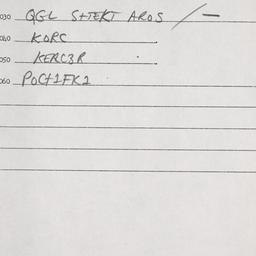 030 QGL S+TEKT AROS / —
040 KORC
050 KERC3R
060 POC+1FK2